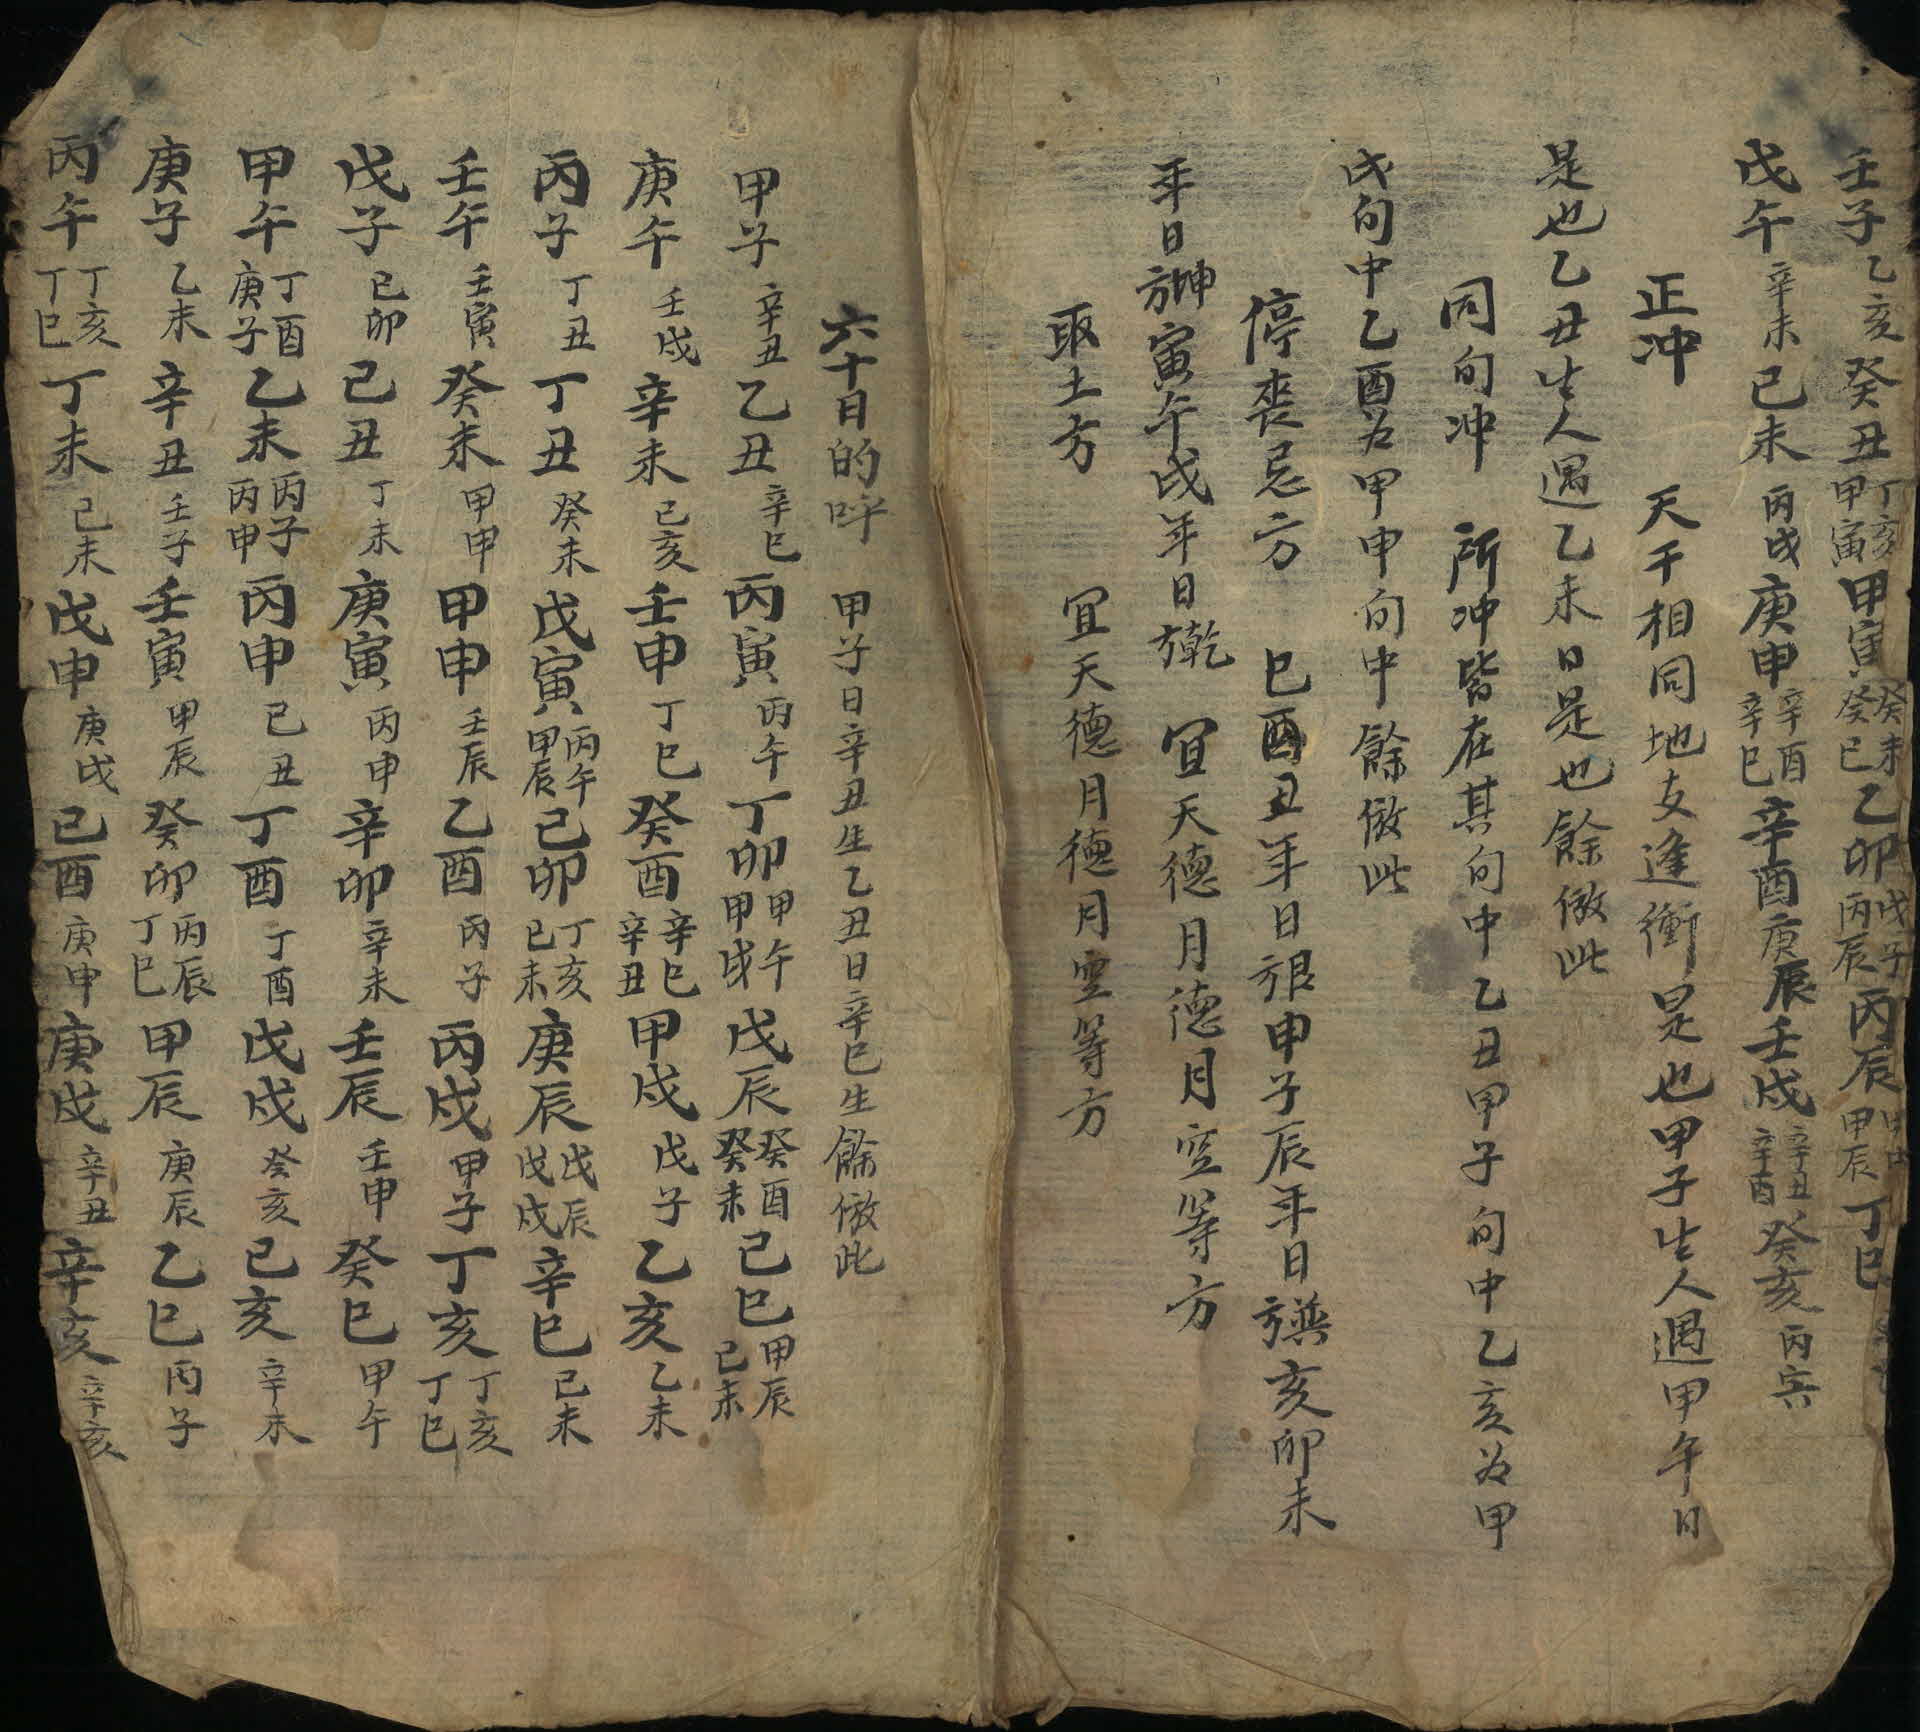 壬子乙亥癸丑丁亥甲寅甲寅癸未癸巳乙卯戊子丙辰丙辰甲申甲辰丁巳
戊午辛未己未丙戌庚申辛酉辛巳辛酉庚辰壬戌辛丑辛酉癸亥丙寅
正冲 天干相同地支逢衝是也甲子生人遇甲午日
是也乙丑生人遇乙未日是也餘倣此
同旬冲 所冲皆在其旬中乙丑甲子旬中乙亥为甲
戌旬中乙酉为甲申旬中餘倣此
停丧忌方 巳酉丑年日艮方申子辰年日巽方亥卯未
年日坤方寅午戌年日乾方 宜天德月德月空等方
取土方 宜天德月德月空等方
六十日的呼 甲子日辛丑生乙丑日辛巳生餘倣此
甲子辛丑乙丑辛巳丙寅丙午丁卯甲午甲戌戊辰癸酉癸未己巳甲辰己未
庚午壬戌辛未己亥壬申丁巳癸酉辛巳辛丑甲戌戊子乙亥乙未
丙子丁丑丁丑癸未戊寅丙午甲辰己卯丁亥己未庚辰戊辰戊戌辛巳己未
壬午壬寅癸未甲申甲申壬辰乙酉丙子丙戌甲子丁亥丁亥丁巳
戊子己卯己丑丁未庚寅丙申辛卯辛未壬辰壬申癸巳甲午
甲午丁酉庚子乙未丙子丙申丙申己丑丁酉丁酉戊戌癸亥己亥辛未
庚子乙未辛丑壬子壬寅甲辰癸卯丙辰丁巳甲辰庚辰乙巳丙子
丙午丁亥丁巳丁未己未戊申庚戌己酉庚申庚戌辛丑辛亥辛亥